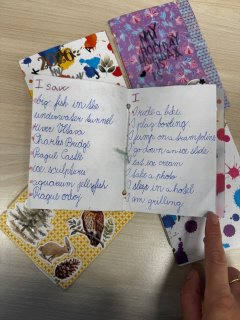 MY
HOLIDAY
I saw
big fish in the
underwater tunnel
River Vltava
Charles Bridge
Prague Castle
ice sculpture
aquarium jellyfish
Prague
I
ride a bike
play bowling
jump on a trampoline
go down an ice slide
eat ice cream
take a photo
sleep in a hotel
am grilling